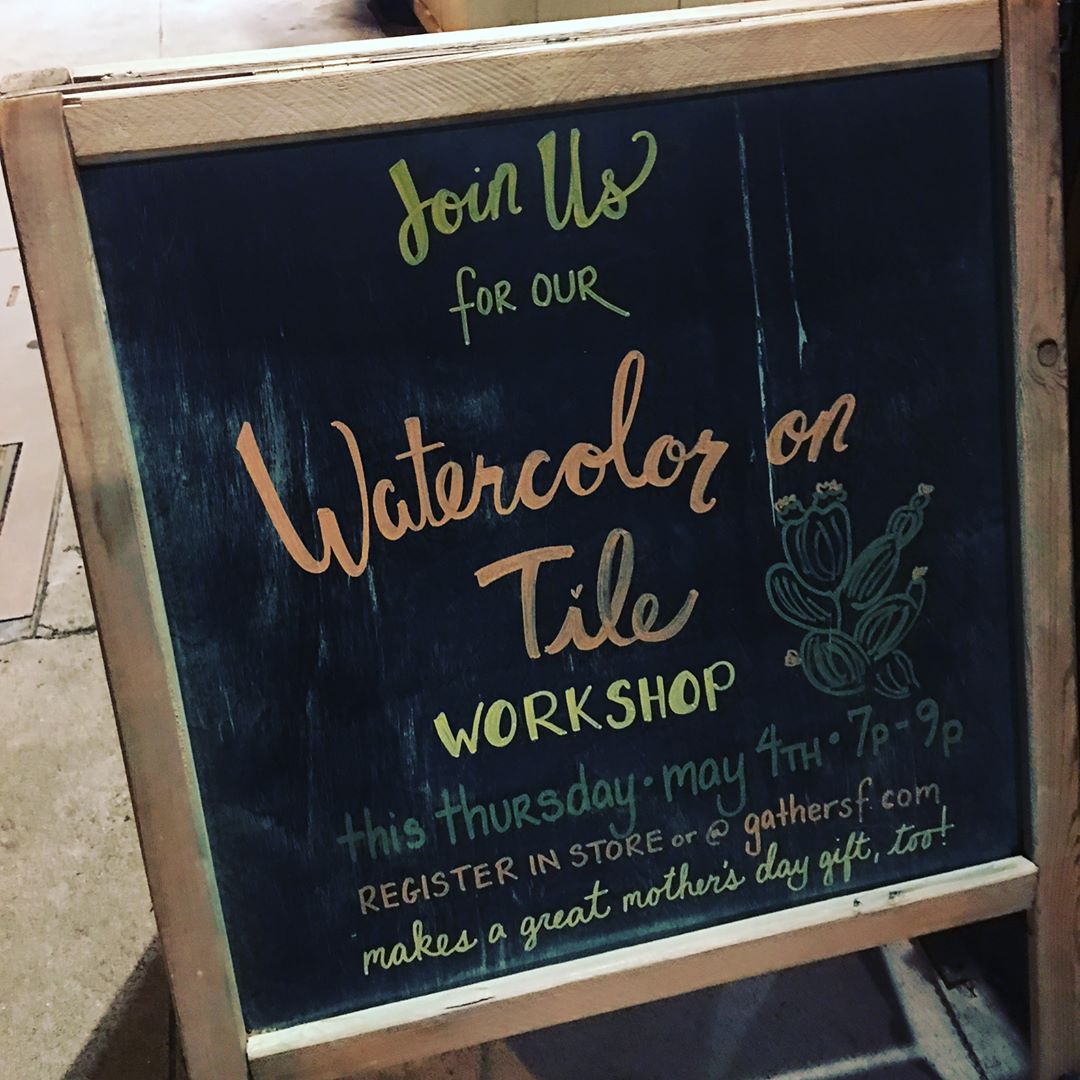 Join Us
for our
Watercolor on
Tile
WORKSHOP
this thursday · may 4TH · 7p - 9p
REGISTER IN STORE or @ gathersf.com
makes a great mother's day gift, too!